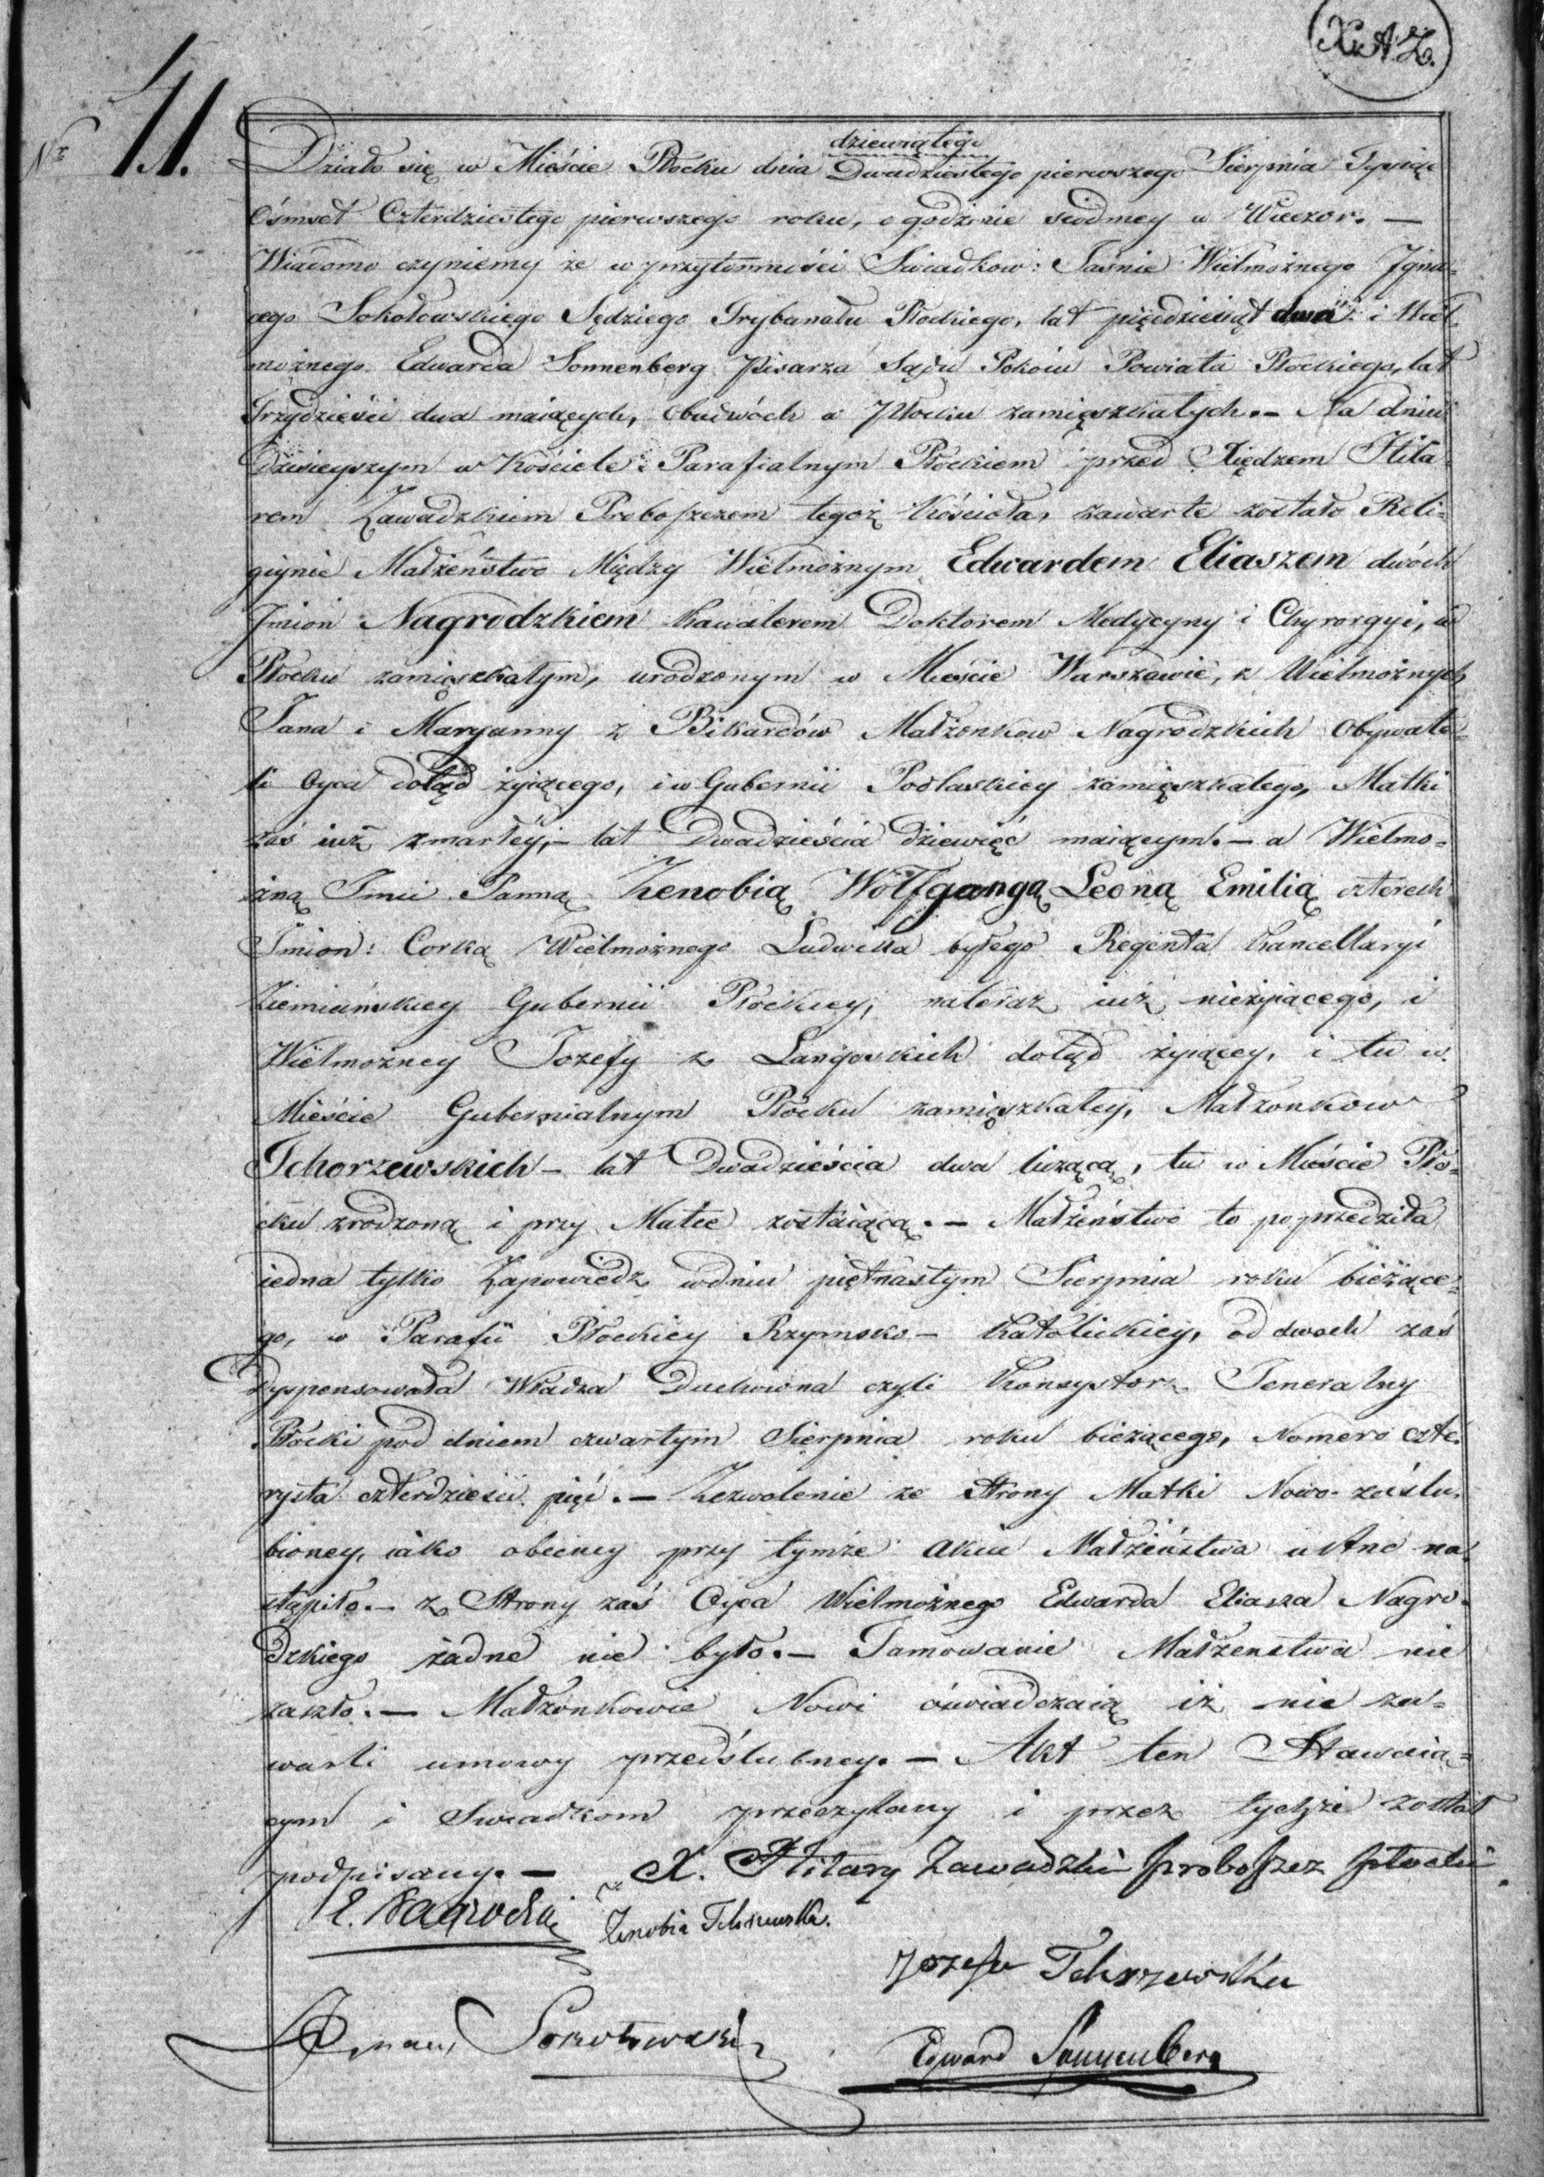 X.A.Z.
Nr 41.
dziewiątego
Działo się w Mieście Płocku dnia Dwudziestego pierwszego Sierpnia Tysiąc
Ośmset Czterdziestego pierwszego roku, o godzinie siódmey w Wieczor. —
Wiadomo czyniemy że w przytomności Swiadkow: Jaśnie Wielmożnego Igna-
cego Sokołowskiego Sędziego Trybunału Płockiego, lat pięćdziesiąt dwa i Wiel-
możnego Edwarda Sonnenberg Pisarza Sądu Pokoiu Powiatu Płockiego, lat
Trzydzieści dwa maiących, obudwóch w Płocku zamięszkałych. — Na dniu
dzisieyszym w Kościele Parafialnym Płockiem przed Xiędzem Hila-
rem Zawadzkiem Proboszczem tegoż Kościoła, zawarte zostało Reli-
giynie Małżeństwo Między Wielmożnym Edwardem Eliaszem dwóch
Jmion Nagrodzkiem Kawalerem Doktorem Medycyny i Chyrorgyi, w
Płocku zamięszkałym, urodzonym w Mieście Warszawie, z Wielmożnych
Jana i Maryanny z Bikardów Małżonkow Nagrodzkich Obywate-
li Oyca dotąd żyiącego, i w Gubernii Podlaskiey zamięszkałego, Matki
zaś iuż zmarłey, — lat Dwadzieścia dziewięć maiącym. — a Wielmo-
żną Jmci Panną Zenobią Wolfgangą Leoną Emilią czterech
Jmion: Corką Wielmożnego Ludwika byłego Regenta Kancellaryi
Ziemiańskiey Gubernii Płockiey, nateraz iuż nieżyiącego, i
Wielmożney Jozefy z Langoskich dotąd żyiącey, i tu w
Mieście Gubernialnym Płocku zamięszkałey, Małżonkow
Tchorzewskich — lat Dwadzieścia dwa liczącą, tu w Mieście Pło-
cku zrodzoną i przy Matce zostaiącą. — Małżeństwo to poprzedziła
iedna tylko Zapowiedz w dniu piętnastym Sierpnia roku bieżące-
go, w Parafii Płockiey Rzymsko — Katolickiey, od dwoch zaś
Dyspensowała Władza Duchowna czyli Konsystorz Jeneralny
Płocki pod dniem czwartym Sierpnia roku bieżącego, Nomero czte-
rysta czterdzieści pięć. — Zezwolenie ze Strony Matki Nowo-zaślu-
bioney, iako obecney przy tymże akcie Małżeństwa ustne na-
stąpiło. — z Strony zaś Oyca Wielmożnego Edwarda Eliasza Nagro-
dzkiego żadne nie było. — Tamowanie Małżenstwa nie
zaszło. — Małżonkowie Nowi oświadczaią iż nie za-
warli umowy przedślubney. — Akt ten Stawaią-
cym i Swiadkom przeczytany i przez tychże został
podpisany. — X. Hilary Zawadzki Proboszcz Płocki
E. Nagrodzki Zenobia Tchorzewska.
Jozefa Tchorzewska
Ignacy Sokołowski
Edward Sonnenberg